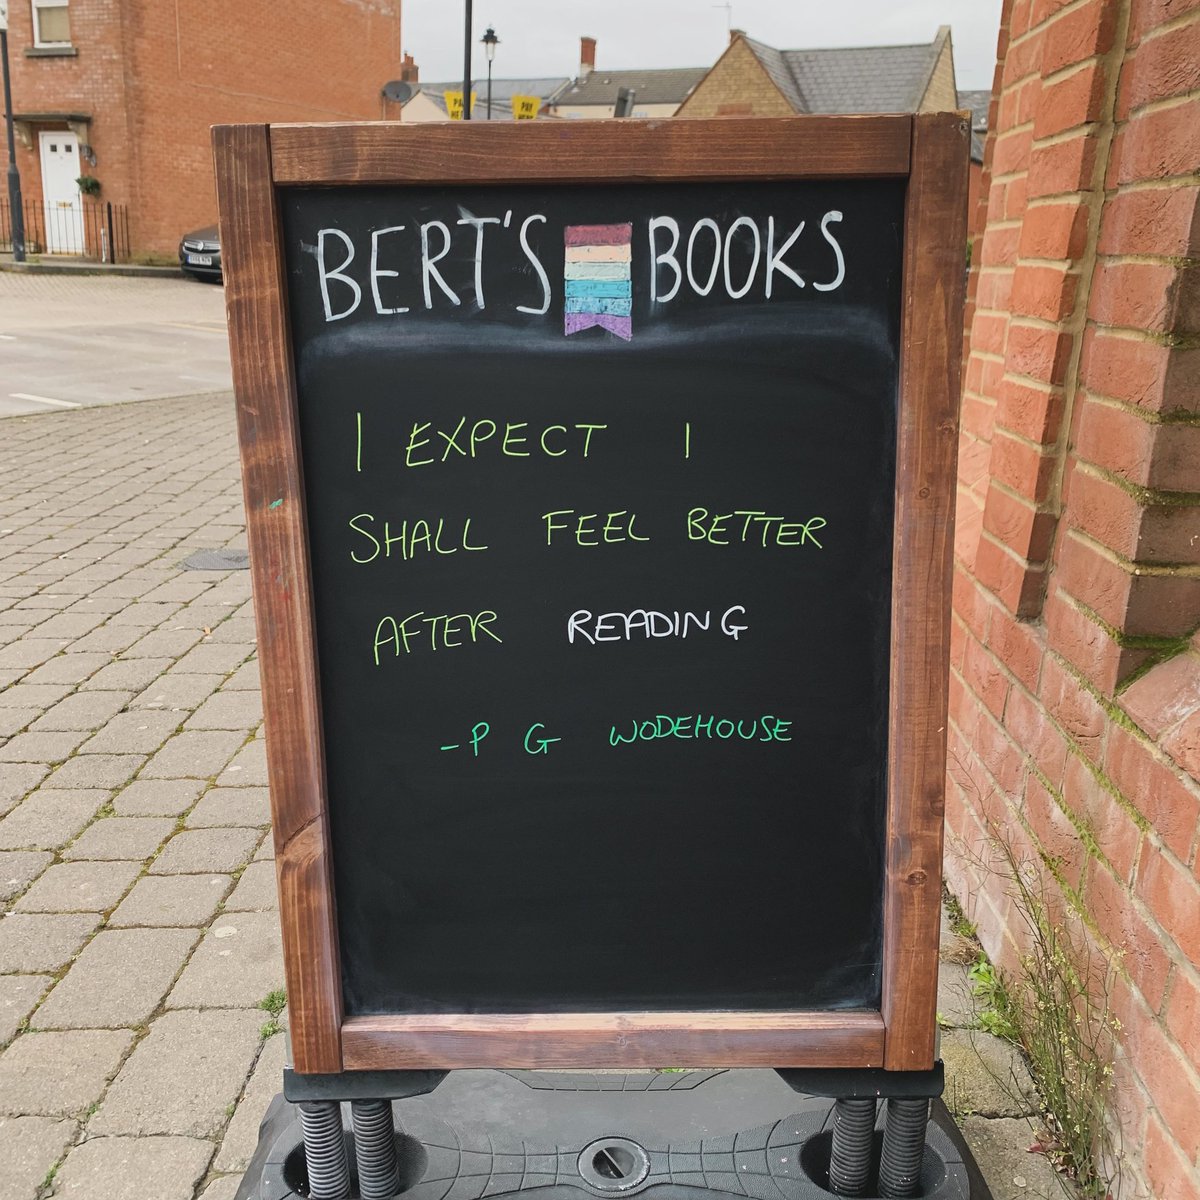 PAY HERE
PAY HERE
BERT'S BOOKS
I EXPECT I
SHALL FEEL BETTER
AFTER READING
- P G WODEHOUSE